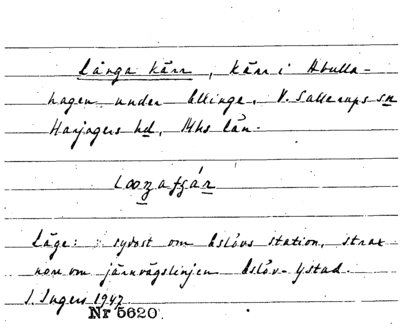 Långa kärr, kärr i Abulla-
hagen under Ellinge, V. Sallerups sn
Harjagers hd, Mhs län.

Läge: sydost om Eslövs station, strax
norr om järnvägslinjen Eslöv-Ystad.
I. Ingers 1947
Nr 5620